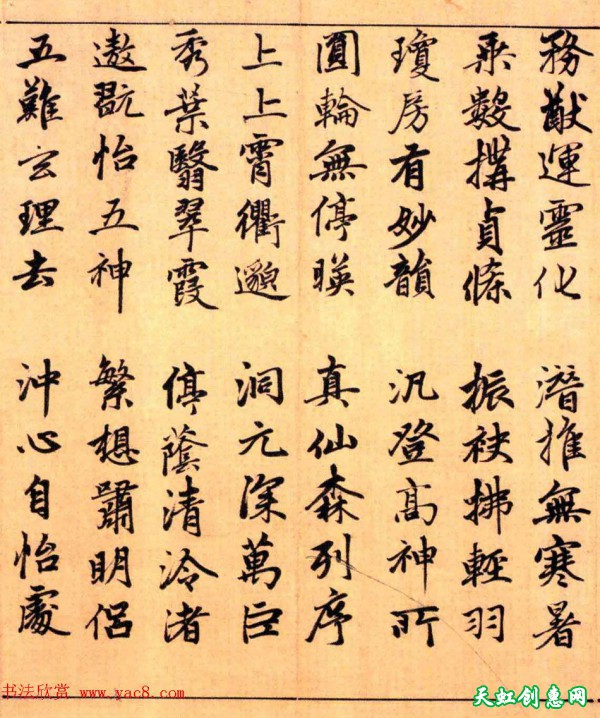 務猷運靈化　潛推無寒暑
乘數構貞條　振袂拂輕羽
瓊房有妙韻　汎登高神所
圓輪無停暎　真仙森列序
上上霄衢邈　洞元深萬巨
秀葉翳翠霞　停蔭清泠渚
遨翫怡五神　繁想嘯明侶
五難玄理去　沖心自怡處
书法欣赏 www.yac8.com
天虹创惠网